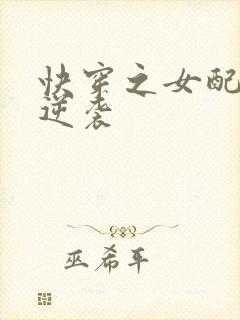 快穿之女配
逆袭
巫希平